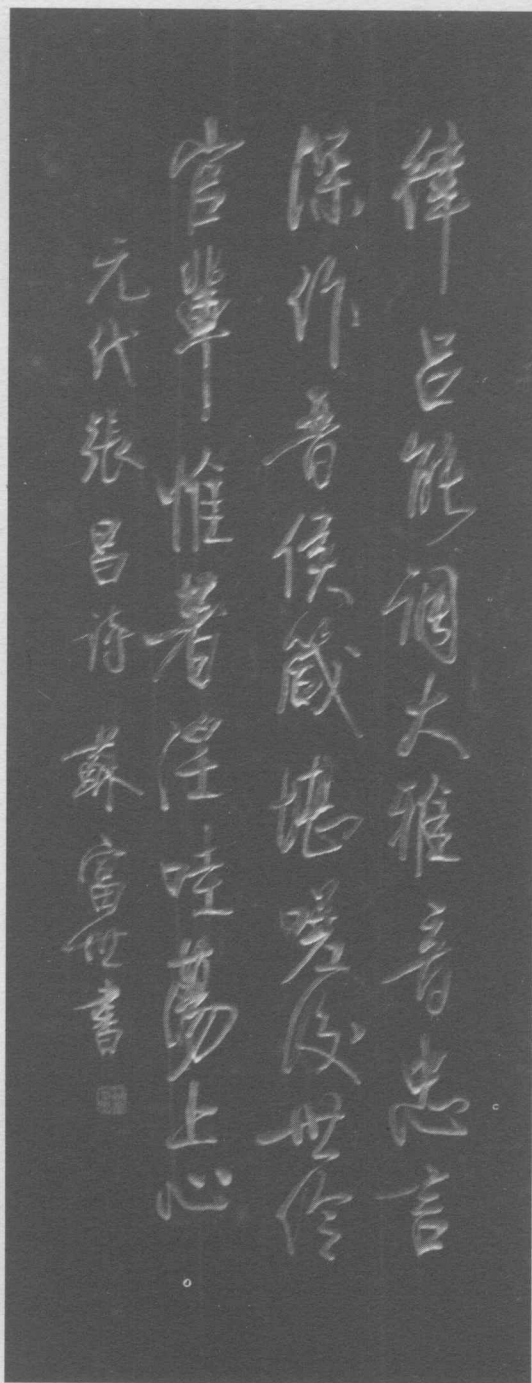 律吕能調大雅音忠言
深作晋侯箴堪嗟後世伶
官輩惟著淫哇蕩上心
元代張昌詩 蘇富世書